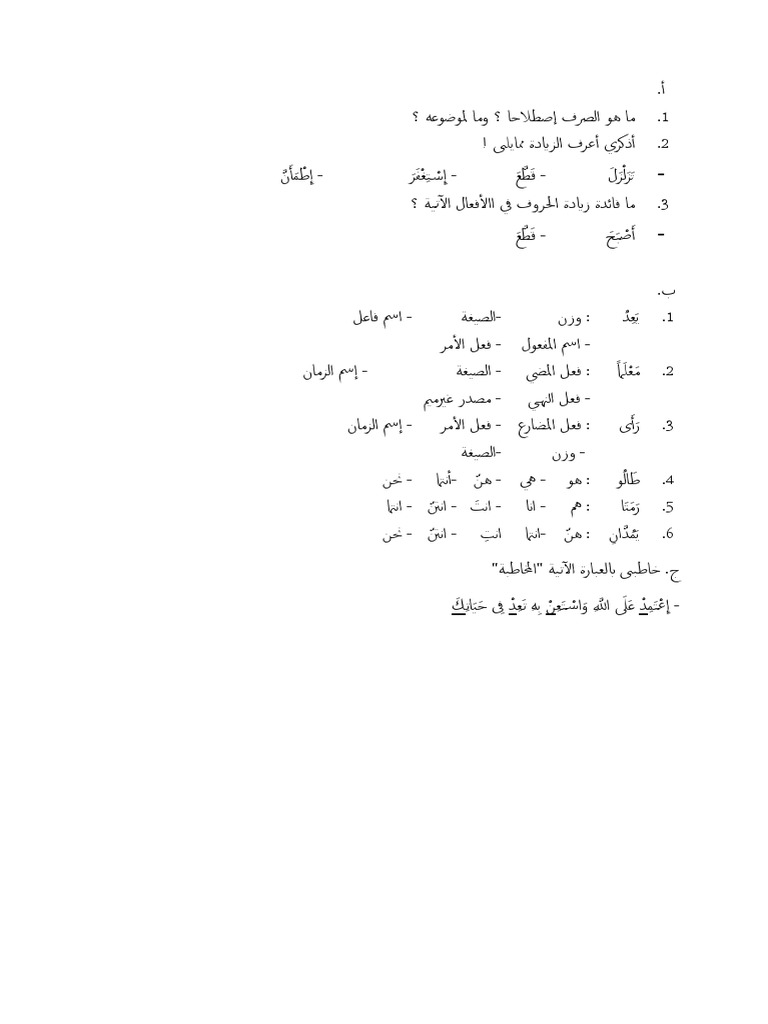 أ.
1. ما هو الصرف إصطلاحا ؟ وما لموضوعه ؟
2. أذكري أعرف الزيادة ممايلى !
- تَزَلْزَلَ - قَطَّعَ - إِسْتِغْفَرَ - إِطْمَأَنَّ
3. ما فائدة زيادة الحروف في االأفعال الآتية ؟
- أَصْبَحَ - قَطَّعَ
ب.
1. يَعِدُ : وزن -الصيغة - اسم فاعل
- اسم المفعول - فعل الأمر
2. مَعْلَماً : فعل المضى - الصيغة - إسم الزمان
- فعل النهي - مصدر غيرميم
3. رَأَى : فعل المضارع - فعل الأمر - إسم الزمان
- وزن -الصيغة
4. طَالُو : هو - هي - هنّ -أنتما - نحن
5. رَمَتَا : هم - انا - انتَ - انتنّ - انتما
6. يَمُدَّانِ : هنّ -انتما انتِ - انتنّ - نحن
ج. خاطبى بالعبارة الآتية "المخاطبة"
- إِعْتَمِدْ عَلَى اللَّهِ وَاسْتَعِنْ بِهِ تَعِدْ فِى حَيَاتِكَ